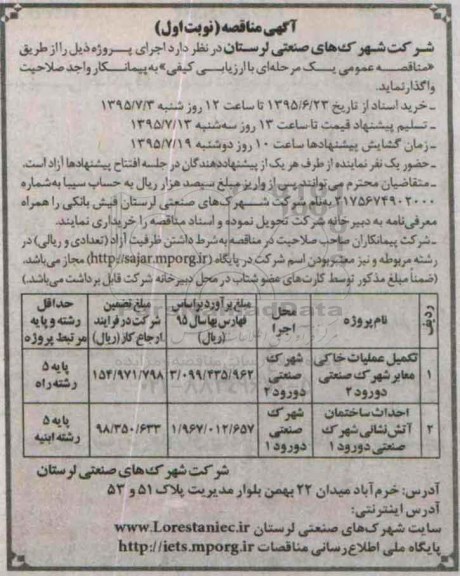 آگهی مناقصه (نوبت اول)
شرکت شهرک‌های صنعتی لرستان در نظر دارد اجرای پروژه ذیل را از طریق
«مناقصه عمومی یک مرحله‌ای با ارزیابی کیفی» به پیمانکار واجد صلاحیت
واگذار نماید.
ـ خرید اسناد از تاریخ ۱۳۹۵/۶/۲۳ تا ساعت ۱۲ روز شنبه ۱۳۹۵/۷/۳
ـ تسلیم پیشنهاد قیمت تا ساعت ۱۳ روز سه‌شنبه ۱۳۹۵/۷/۱۳
ـ زمان گشایش پیشنهادها ساعت ۱۰ روز دوشنبه ۱۳۹۵/۷/۱۹
ـ حضور یک نفر نماینده از طرف هر یک از پیشنهاددهندگان در جلسه افتتاح پیشنهادها آزاد است.
ـ متقاضیان محترم می‌توانند پس از واریز مبلغ سیصد هزار ریال به حساب سیبا به‌شماره
۲۱۷۵۶۷۴۹۰۲۰۰۰ به‌نام شرکت شهرک‌های صنعتی لرستان فیش بانکی را همراه
معرفی‌نامه به دبیرخانه شرکت تحویل نموده و اسناد مناقصه را خریداری نمایند.
ـ شرکت پیمانکاران صاحب صلاحیت در مناقصه به‌شرط داشتن ظرفیت آزاد (تعدادی و ریالی) در
رشته مربوطه و نیز معتبر بودن اسم شرکت در پایگاه (http://sajar.mporg.ir) مجاز می‌باشد.
(ضمناً مبلغ مذکور توسط کارت‌های عضو شتاب در محل دبیرخانه شرکت قابل برداشت می‌باشد.)
ردیف | نام پروژه | محل اجرا | مبلغ برآورد براساس فهارس بها سال ۹۵ (ریال) | مبلغ تضمین شرکت در فرایند ارجاع کار (ریال) | حداقل رشته و پایه مرتبط پروژه
۱ | تکمیل عملیات خاکی معابر شهرک صنعتی دورود ۲ | شهرک صنعتی دورود ۲ | ۳/۰۹۹/۴۳۵/۹۶۲ | ۱۵۴/۹۷۱/۷۹۸ | پایه ۵ رشته راه
۲ | احداث ساختمان آتش نشانی شهرک صنعتی دورود ۱ | شهرک صنعتی دورود ۱ | ۱/۹۶۷/۰۱۲/۶۵۷ | ۹۸/۳۵۰/۶۳۳ | پایه ۵ رشته ابنیه
شرکت شهرک‌های صنعتی لرستان
آدرس: خرم آباد میدان ۲۲ بهمن بلوار مدیریت پلاک ۵۱ و ۵۳
آدرس اینترنتی:
سایت شهرک‌های صنعتی لرستان www.Lorestaniec.ir
پایگاه ملی اطلاع رسانی مناقصات http://iets.mporg.ir